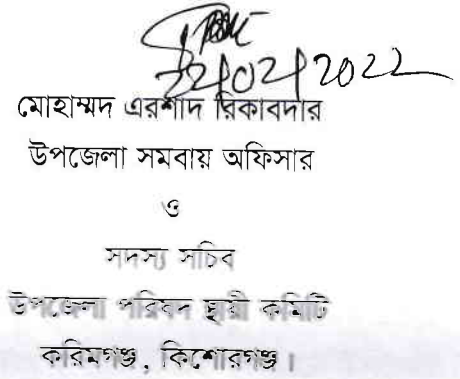 22/02/2022
মোহাম্মদ এরশাদ রিকাবদার
উপজেলা সমবায় অফিসার
ও
সদস্য সচিব
উপজেলা পরিষদ স্থায়ী কমিটি
করিমগঞ্জ, কিশোরগঞ্জ।